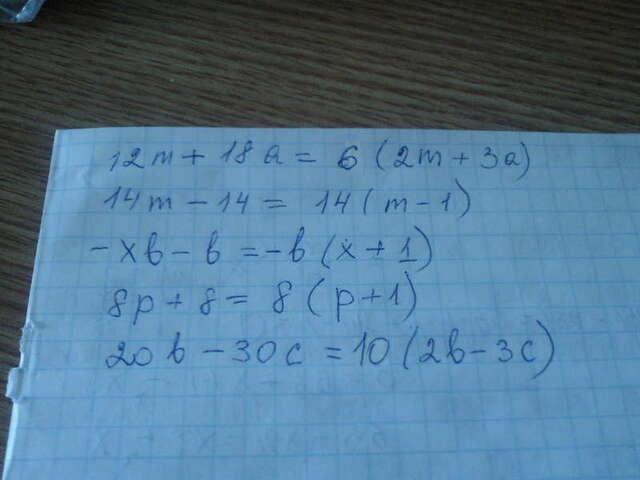 12m + 18a = 6 (2m + 3a)
14m - 14 = 14 (m - 1)
- xb - b = -b (x + 1)
8p + 8 = 8 (p + 1)
20b - 30c = 10 (2b - 3c)